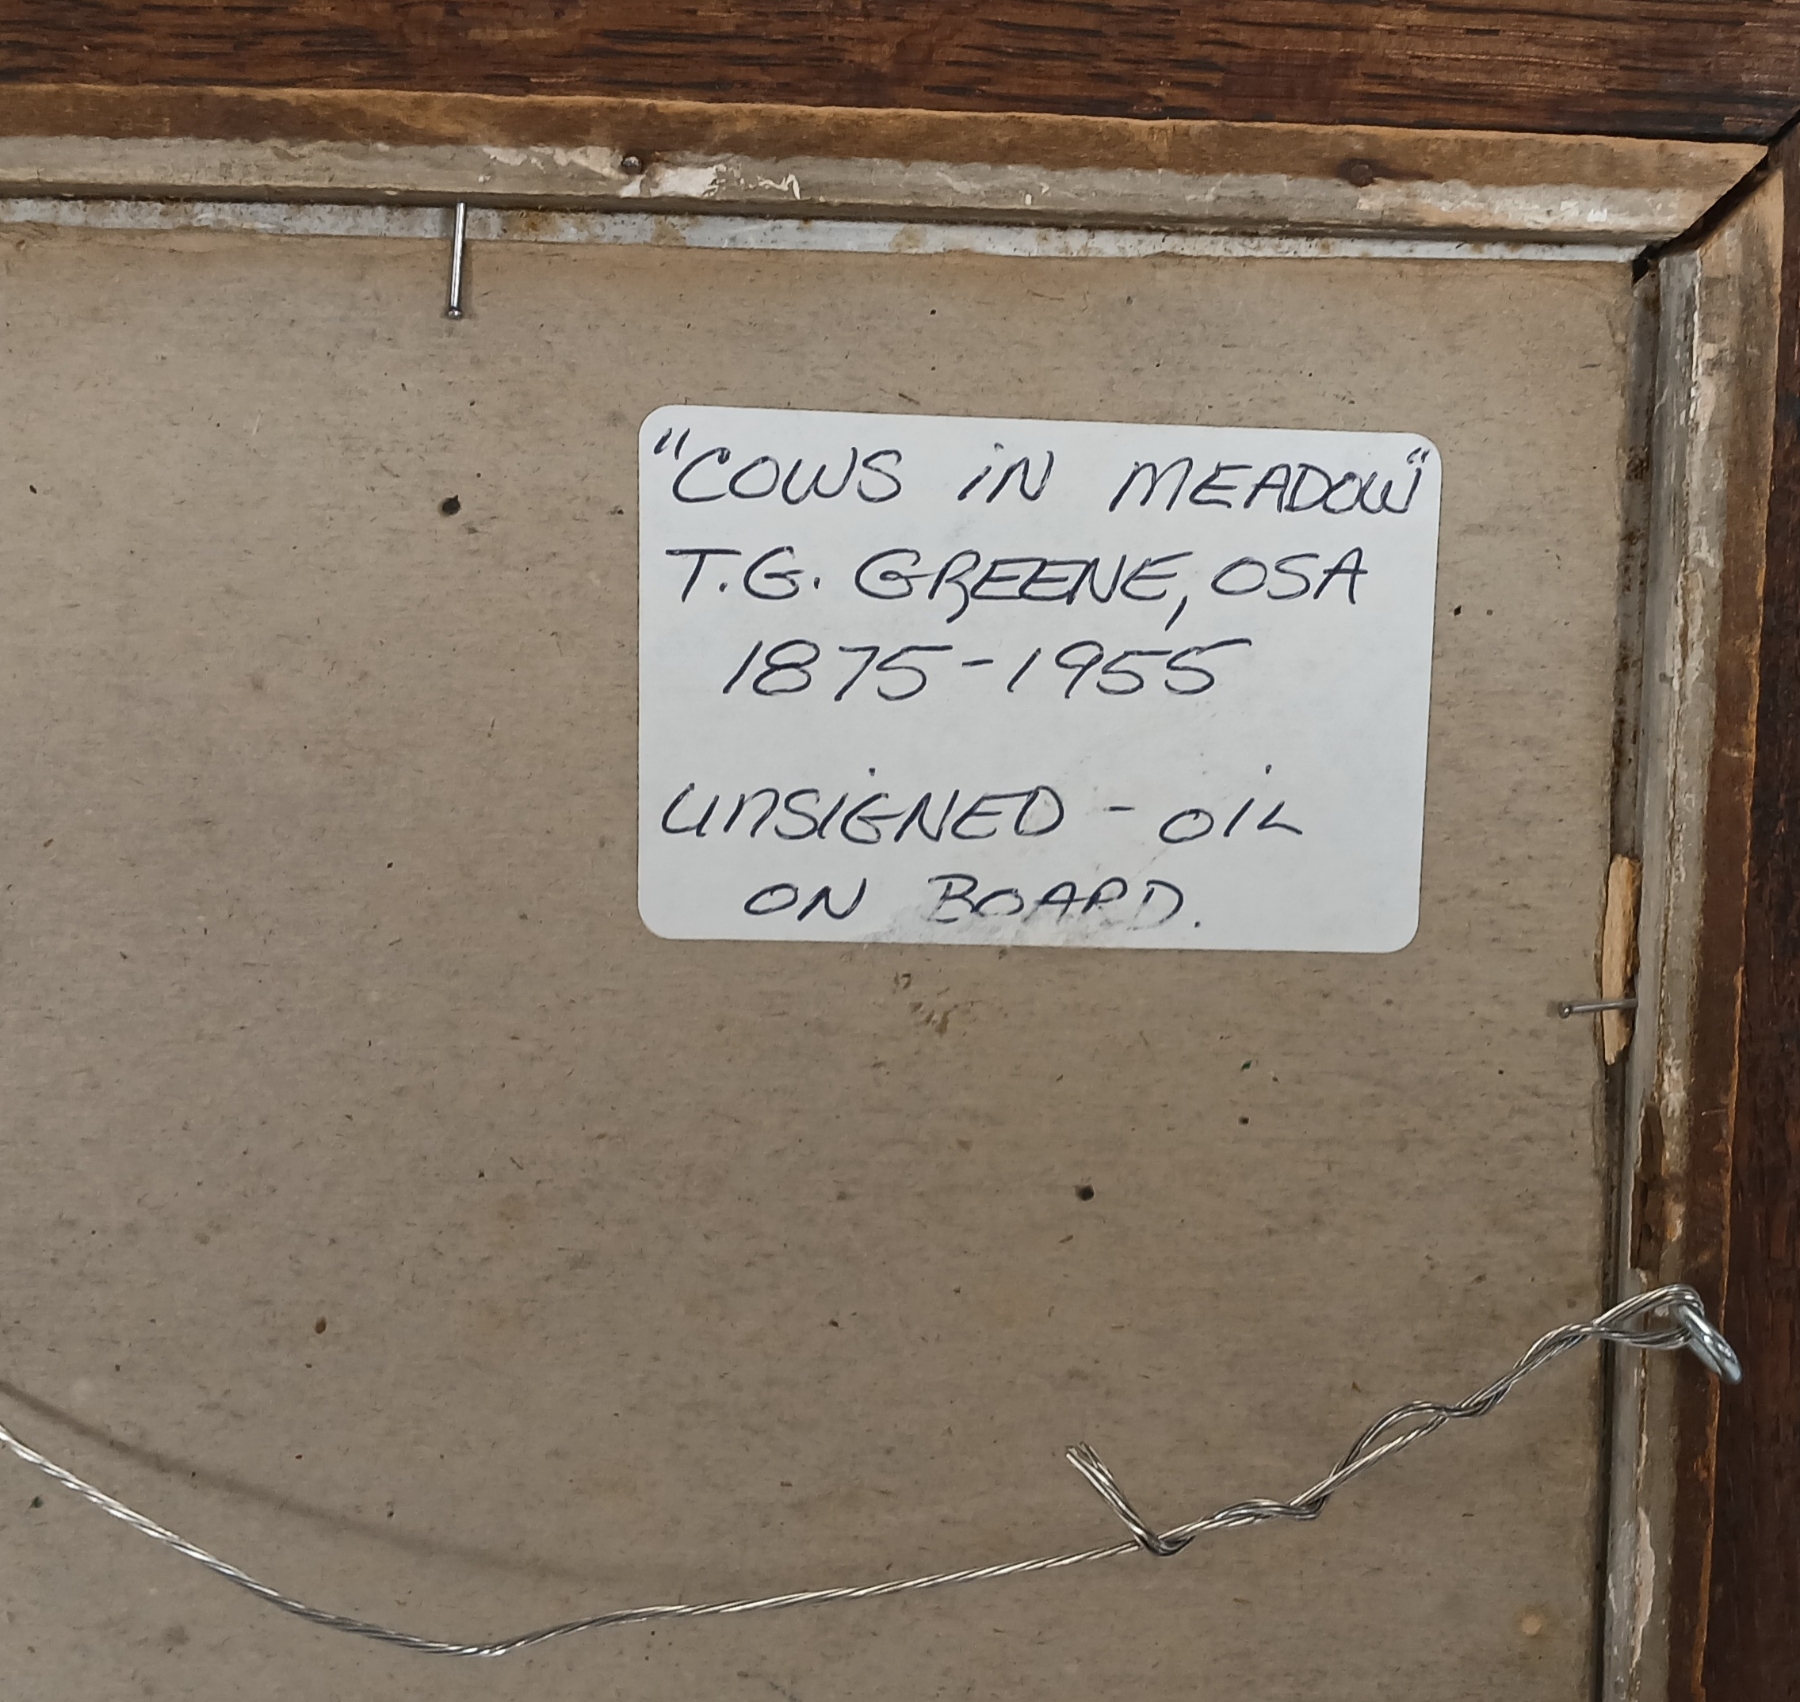 "COWS IN MEADOW"
T.G. GREENE, OSA
1875-1955
UNSIGNED - OIL
ON BOARD.